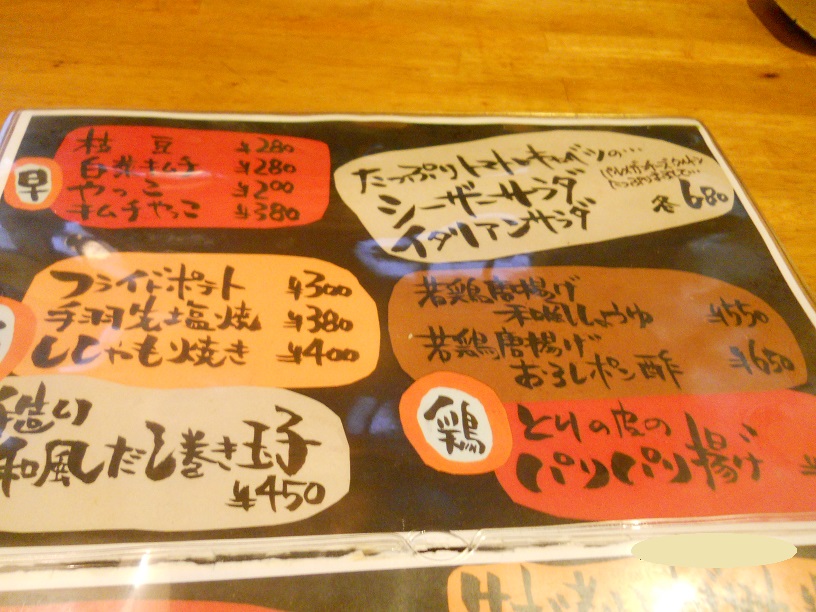 早
枝豆 ¥280
白菜キムチ ¥280
やっこ ¥200
キムチやっこ ¥380
たっぷりトマトとキャベツの…
シーザーサラダ
イタリアンサラダ
各680
フライドポテト ¥300
手羽先塩焼 ¥380
ししゃも焼き ¥400
若鶏唐揚げ
和風しょうゆ ¥550
若鶏唐揚げ
おろしポン酢 ¥650
造り
和風だし巻き玉子
¥450
鶏
とりの皮の
パリパリ揚げ